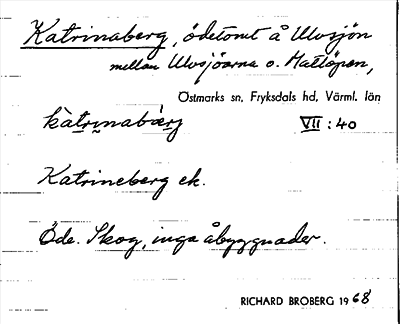 Katrinaberg, ödetomt å Ulvsjön
mellan Ulvsjöarna o. Mattöpen,
Östmarks sn, Fryksdals hd, Värml. län
kàtrinabærj VII : 40
Katrineberg ek.
Öde. Skog, inga åbyggnader.
RICHARD BROBERG 1968